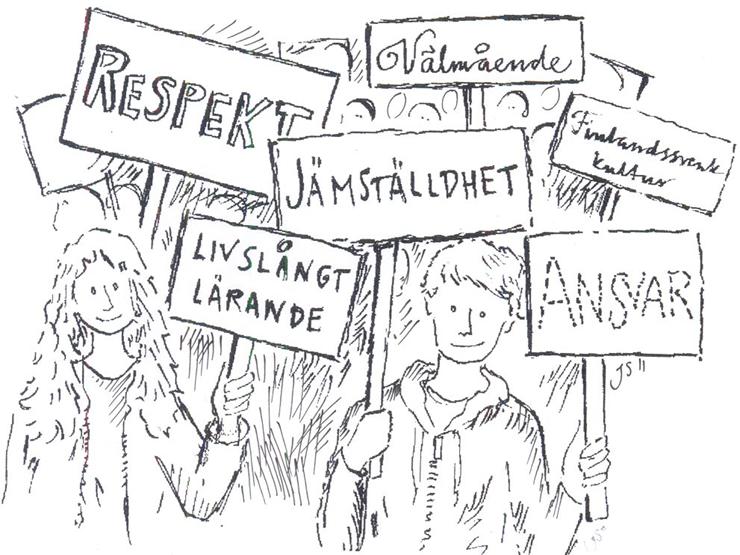 RESPEKT
Välmående
Finlandssvensk
kultur
JÄMSTÄLLDHET
LIVSLÅNGT
LÄRANDE
ANSVAR
JS 11